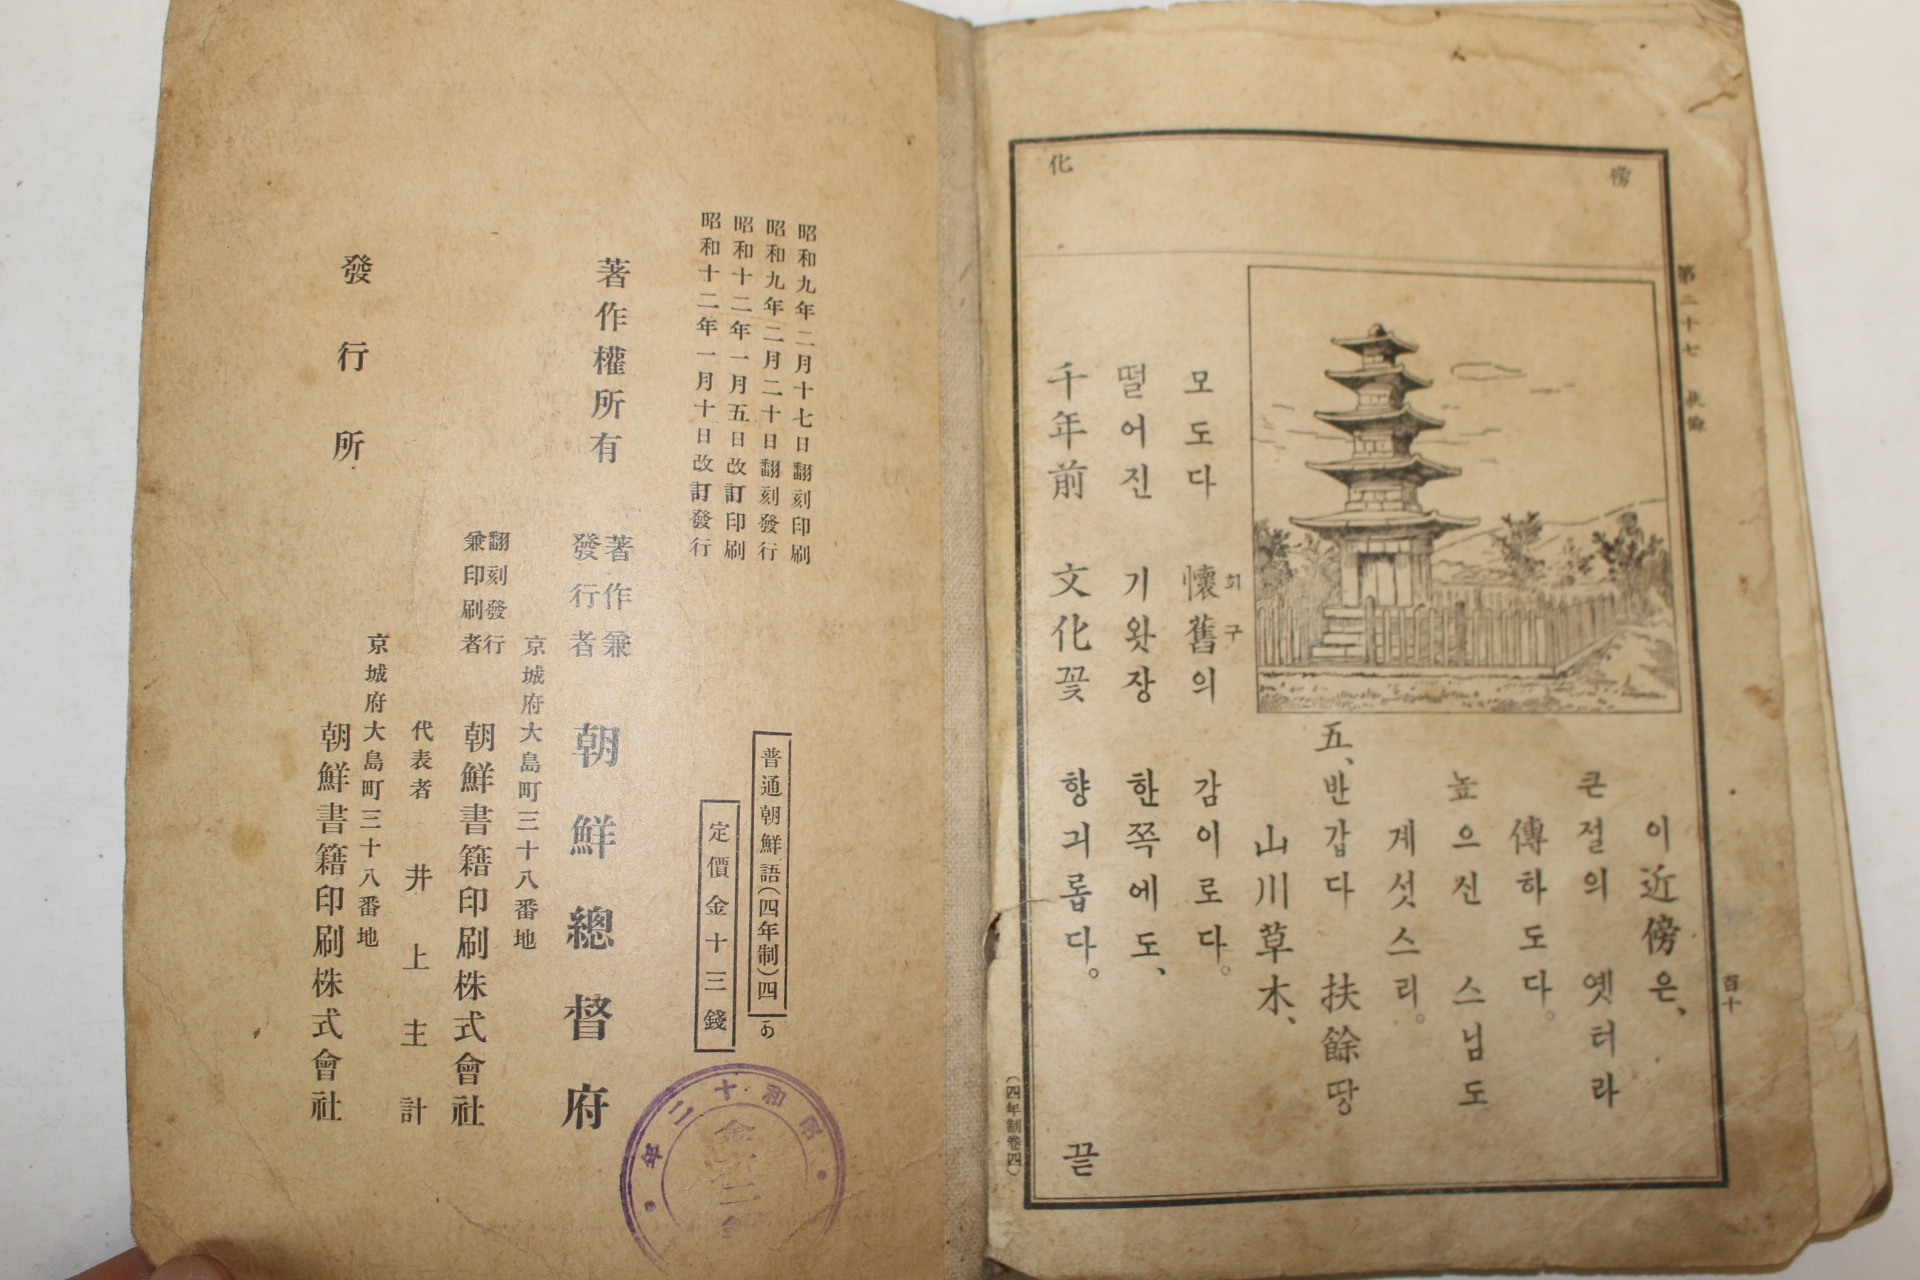 第二十七 扶餘
百十
傍
化
이近傍은、
큰절의 옛터라
傳하도다。
높으신 스님도
계섯스리。
五、반갑다 扶餘땅
山川草木、
회구
모도다 懷舊의 감이로다。
떨어진 기왓장 한쪽에도、
千年前 文化꽃 향긔롭다。
끝
(四年制卷四)
昭和九年二月十七日翻刻印刷
昭和九年二月二十日翻刻發行
昭和十二年一月五日改訂印刷
昭和十二年一月十日改訂發行
普通朝鮮語(四年制)四
あ
定價金十三錢
著作權所有
著作兼
發行者
朝鮮總督府
京城府大島町三十八番地
翻刻發行
兼印刷者
朝鮮書籍印刷株式會社
代表者 井上主計
京城府大島町三十八番地
發行所
朝鮮書籍印刷株式會社
昭和十二年